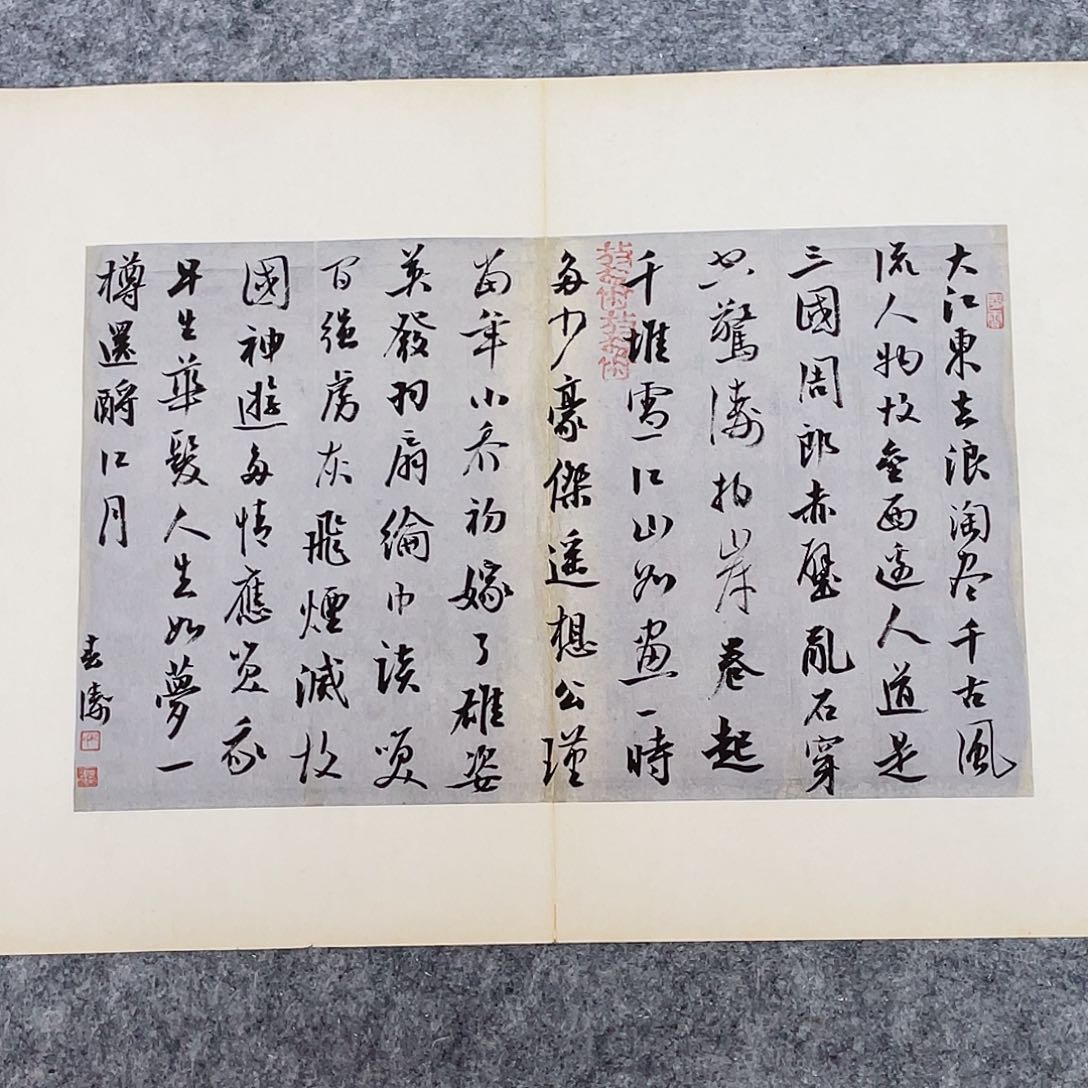 大江東去浪淘尽千古風
流人物故壘西邊人道是
三國周郎赤壁亂石穿
空驚濤拍岸卷起
千堆雪一江山如畫一時
多少豪傑遙想公瑾
當年小喬初嫁了雄姿
英發羽扇綸巾談笑
間強虜灰飛煙滅故
國神遊多情應笑我
早生華髮人生如夢一
樽還酹江月